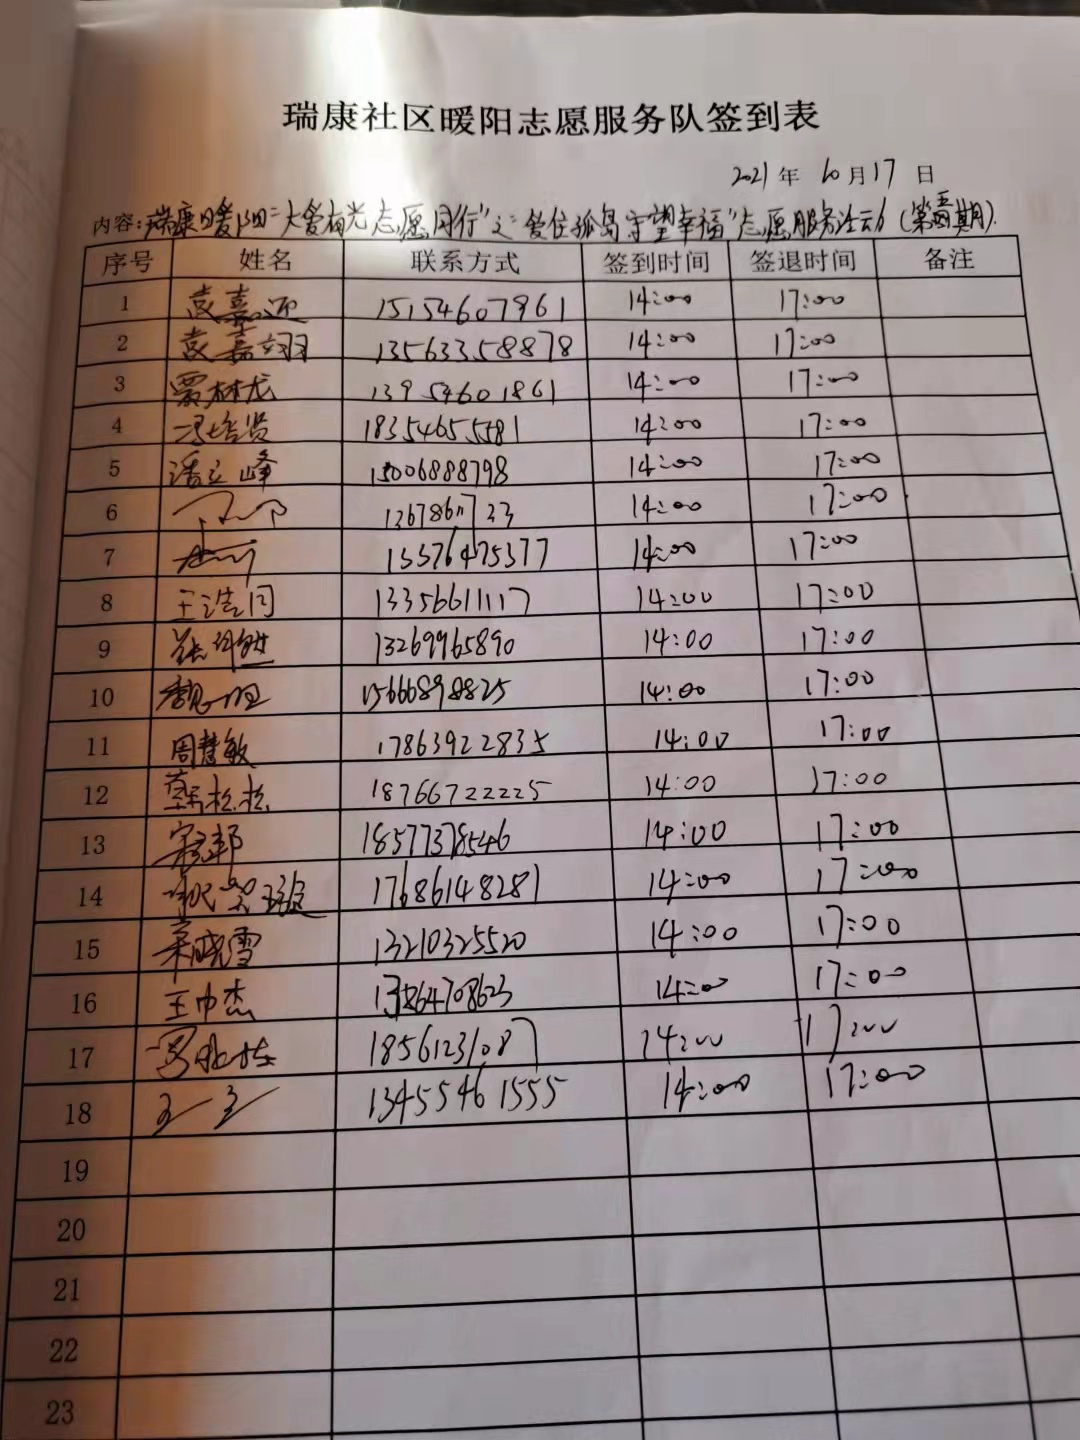 瑞康社区暖阳志愿服务队签到表
2021年10月17日
内容:瑞康暖阳"大爱有光 志愿同行"之"爱在孤岛 守望幸福"志愿服务活动(第 期)
序号 姓名 联系方式 签到时间 签退时间 备注
1 袁嘉 15154607961 14:00 17:00
2 袁嘉翊 13563358878 14:00 17:00
3 贾林龙 13954601861 14:00 17:00
4 冯培贤 18354655581 14:00 17:00
5 潘立峰 15006888798 14:00 17:00
6 14:00 17:00
7 14:00 17:00
8 王浩同 13356611117 14:00 17:00
9 13269965890 14:00 17:00
10 15666898825 14:00 17:00
11 周慧敏 17863922835 14:00 17:00
12 松松 18766722225 14:00 17:00
13 18577378546 14:00 17:00
14 17686148281 14:00 17:00
15 晓雪 13210325520 14:00 17:00
16 王中杰 14:00 17:00
17 18561231087 14:00 17:00
18 13455461555 14:00 17:00
19
20
21
22
23